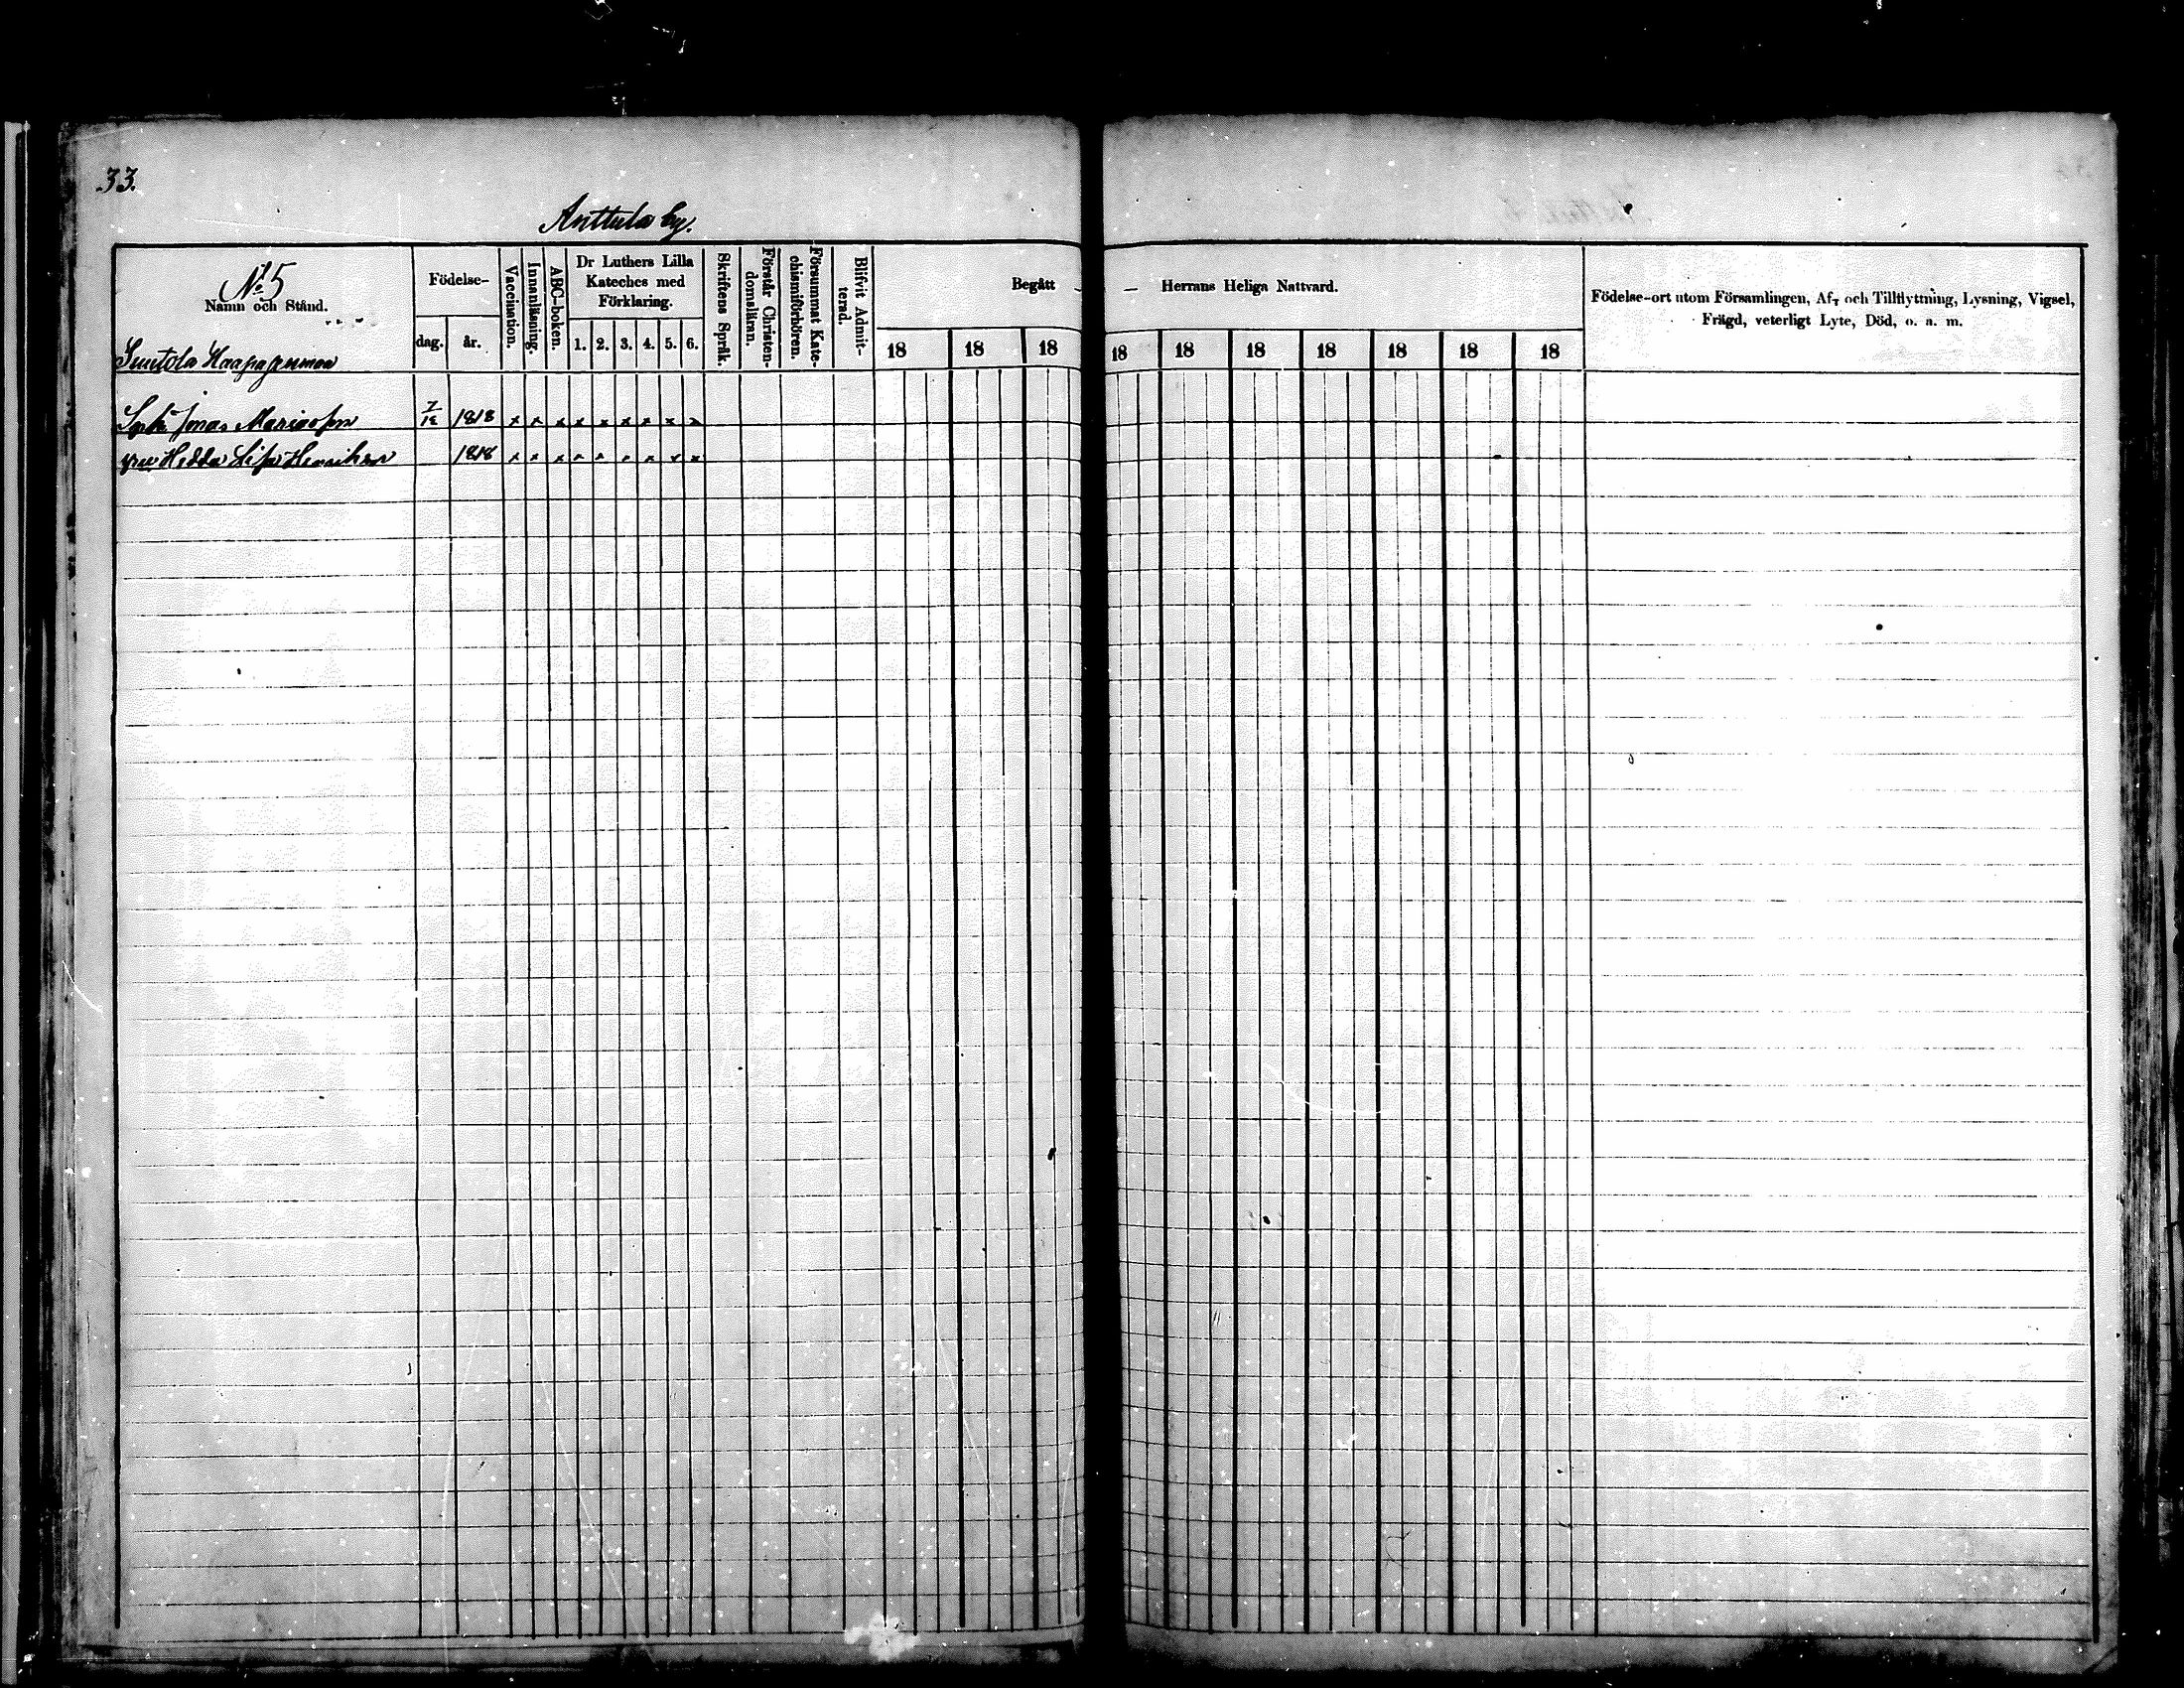 33.
Anttula by.
No 5
Namn och Stånd.
Födelse-
dag.
år.
Vaccination.
Innanläsning.
ABC-boken.
Dr Luthers Lilla
Kateches med
Förklaring.
1. 2. 3. 4. 5. 6.
Skriftens Språk.
Förstår Christen-
domsläran.
Försummat Kate-
chismiförhören.
Blifvit Admit-
terad.
Begått — — Herrans Heliga Nattvard.
18 18 18 18 18 18 18 18 18 18
Födelse-ort utom Församlingen, Af- och Tillflyttning, Lysning, Vigsel,
Frägd, veterligt Lyte, Död, o. a. m.
Suutola
Jonas 1818 x x x x x x x x x
Hedda Lisa Henriksdr 1818 x x x x x x x x x